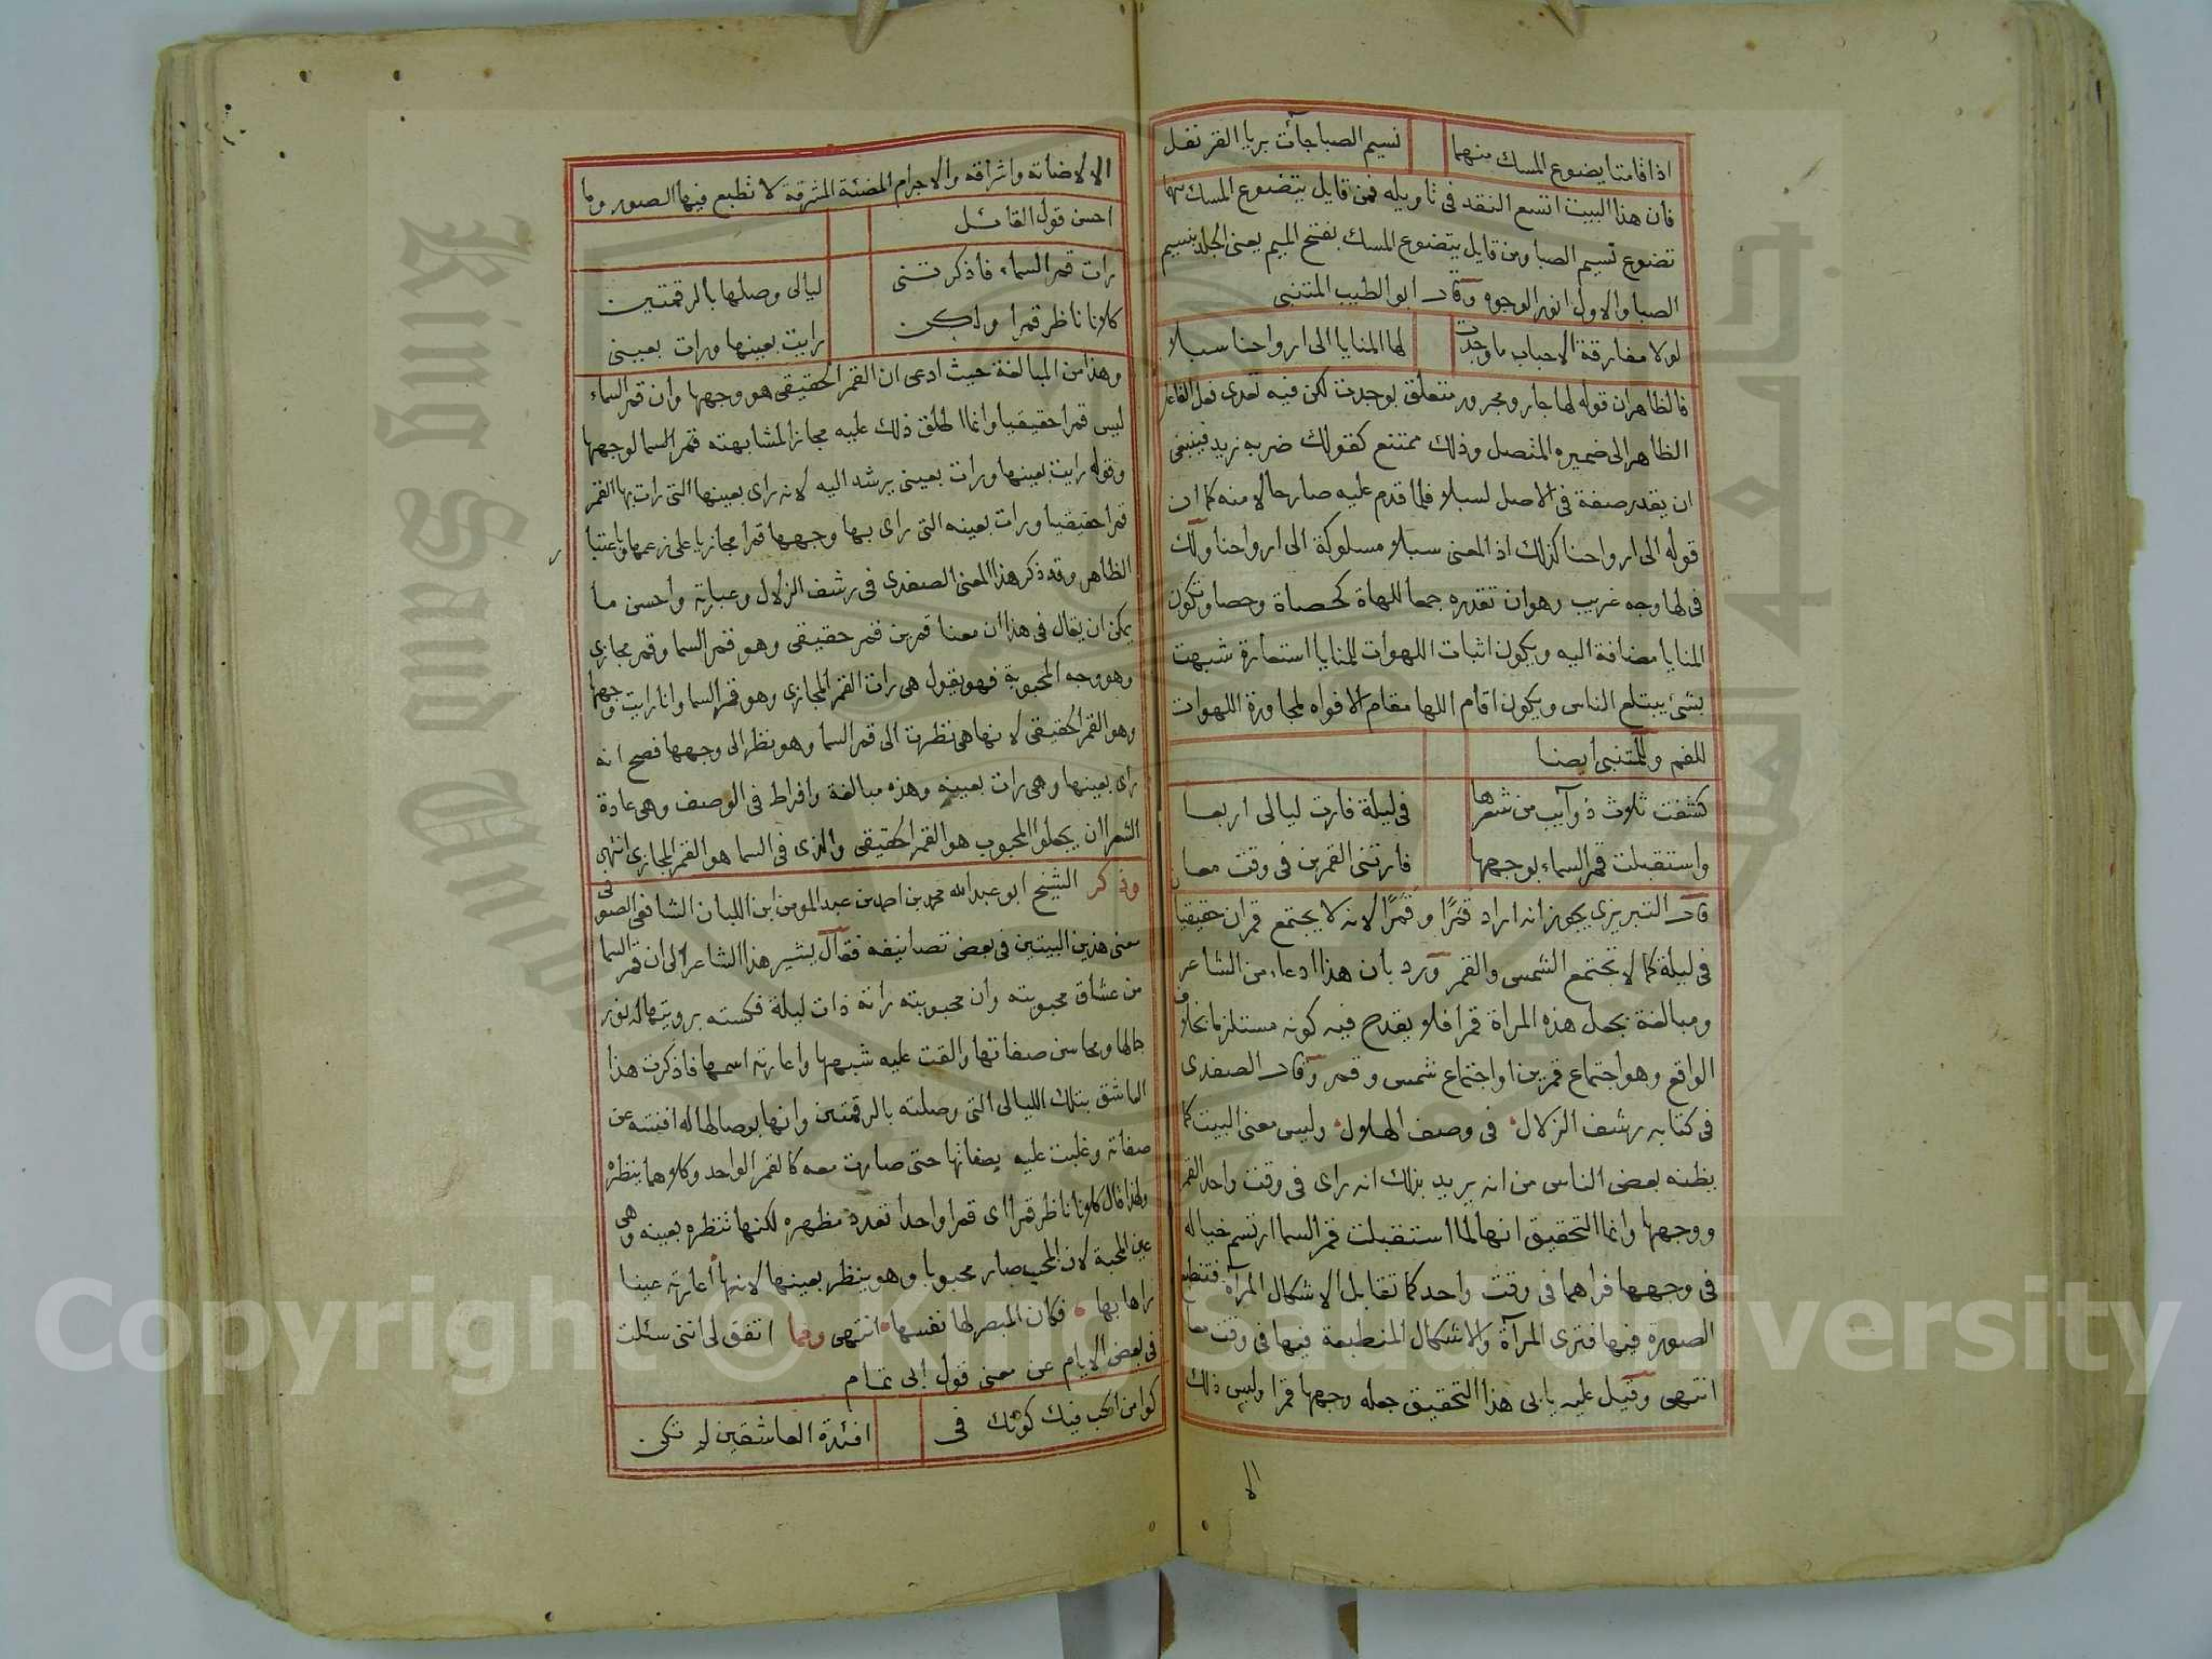 اذا قامتا يضوع المسك منهما نسيم الصبا جآت بريا القرنفل
فان هذا البيت اتسع النقد فى تاويله فمن قايل يتضوع المسك منها
تضوع نسيم الصبا ومن قايل يتضوع المسك بفتح الميم يعنى الجلد بنسيم
الصبا والاول انور الوجوه وقال ابو الطيب المتنبى
لولا مفارقة الاحباب ما وجدت لها المنايا الى ارواحنا سبلا
فالظاهر ان قوله لها جار ومجرور متعلق بوجدت لكن فيه تعدى فعل الفاعل
الظاهر الى ضميره المتصل وذلك ممتنع كقولك ضربه زيد فينبغى
ان يقدر صفة فى الاصل لسبلا فلما قدم عليه صار حالا منه كما ان
قوله الى ارواحنا كذلك اذ المعنى سبلا مسلوكة الى ارواحنا ولك
فى لها وجه غريب وهو ان تقدره جمعا للهاة كحصاة وحصا وتكون
المنايا مضافة اليه ويكون اثبات اللهوات للمنايا استعارة شبهت
بشئ يبتلع الناس ويكون اقام اللها مقام الافواه لمجاورة اللهوات
للفم وللمتنبى ايضا
كشفت ثلاث ذوآيب من شعرها فى ليلة فارت ليالى اربعا
واستقبلت قمر السماء بوجهها فارتنى القمرين فى وقت معا
قال التبريزى يجوز انه اراد قمرًا و قمرًا لانه لا يجتمع قمران حقيقيا
فى ليلة كما لا تجتمع الشمس والقمر ورد بان هذا ادعاء من الشاعر
ومبالغة بجعل هذه المراة قمرا فلا يقدح فيه كونه مستلزما بخلاف
الواقع وهو اجتماع قمرين او اجتماع شمس وقمر وقال الصفدى
فى كتابه رشف الزلال فى وصف الهلال وليس معنى البيت كما
يظنه بعض الناس من انه يريد بذلك انه راى فى وقت واحد القمر
ووجهها وانما التحقيق انها لما استقبلت قمر السما ارتسم خياله
فى وجهها فراهما فى وقت واحد كما تقابل الاشكال المرآة فتنطبع
الصورة فيها فترى المرآة والاشكال المنطبعة فيها فى وقت معا
انتهى وقيل عليه يابى هذا التحقيق جعله وجهها قمرا وليس ذلك
الا
الا لاضاته واشراقه والاجرام المضئة المشرقة لا تطبع فيها الصور وما
احسن قول القائل
رات قمر السماء فاذكرتنى ليالى وصلها بالرقمتين
كلانا ناظر قمرا ولكن رايت بعينها ورات بعينى
وهذا من المبالغة حيث ادعى ان القمر الحقيقى هو وجهها وان قمر السماء
ليس قمرا حقيقيا وانما اطلق ذلك عليه مجازا لمشابهته قمر السما لوجهها
وقوله رايت بعينها ورات بعينى يرشد اليه لانه راى بعينها التى رات بها القمر
قمرا حقيقيا ورات بعينه التى راى بها وجهها قمرا مجازيا على زعمها وباعتبا
ر
الظاهر وقد ذكر هذا المعنى الصفدى فى رشف الزلال وعبارته واحسن ما
يمكن ان يقال فى هذا ان معنا قمرين قمر حقيقى وهو قمر السما وقمر مجازى
وهو وجه المحبوبة فهو يقول هى رات القمر المجازى وهو قمر السما وانا رايت وجهها
وهو القمر الحقيقى لانها هى نظرت الى قمر السما وهو نظر الى وجهها فصح انه
راى بعينها وهى رات بعينه وهذه مبالغة وافراط فى الوصف وهى عادة
الشعرا ان يجعلوا المحبوب هو القمر الحقيقى والذى فى السما هو القمر المجازى انتهى
وذكر الشيخ ابو عبد الله محمد بن احمد بن عبد المومن ابن اللبان الشافعى الصوفى
معنى هذين البيتين فى بعض تصانيفه فقال يشير هذا الشاعر الى ان قمر السما
من عشاق محبوبته وان محبوبته راته ذات ليلة فكسته برويتها له نور
جمالها ومحاسن صفاتها والقت عليه شبهها واعارته اسمها فاذكرت هذا
العاشق بتلك الليالى التى وصلته بالرقمتين وانها بوصالها له افنته عن
صفاته وغلبت عليه بصفاتها حتى صارت معه كالقمر الواحد وكلاهما ينظره
ولهذا قال كلانا ناظر قمرا اى قمرا واحدا تعدد مظهره لكنها تنظره بعينه وهى
عين المحبة لان المحب صار محبوبا وهو ينظر بعينها لانها اعارته عينا
راها بها فكان المبصر لها نفسها انتهى ومما اتفق لى اننى سئلت
فى بعض الايام عن معنى قول ابى تمام
كوامن الحب فيك كونك فى افئدة العاشقين لم تكن
Copyright © King Saud University